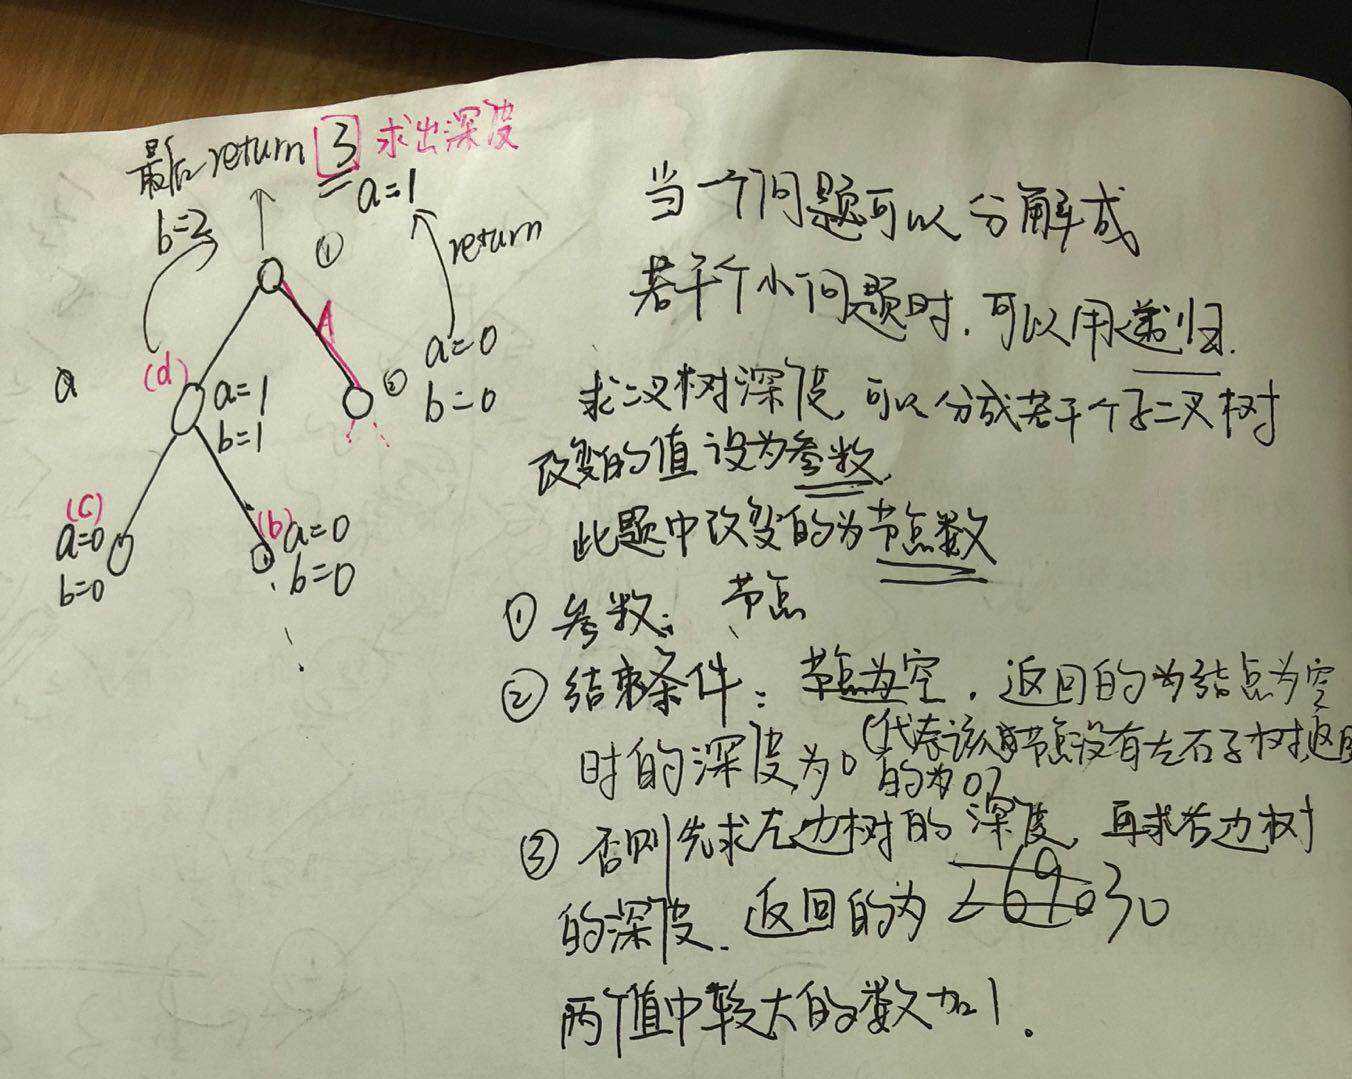 最后return 3 求出深度
b=2
a=1
①
return
a
(d)
a=1
b=1
A
②
a=0
b=0
(c)
a=0
b=0
(b)
a=0
b=0
当一个问题可以分解成
若干个小问题时,可以用递归.
求二叉树深度,可以分成若干个子二叉树
改变的值设为参数,
此题中改变的为节点数
① 参数: 节点
② 结束条件: 节点为空,返回的为结点为空
时的深度为0 (代表该节点没有左右子树,返回
的为0)
③ 否则先求左边树的深度,再求右边树
的深度.返回的为
两个值中较大的数加1.